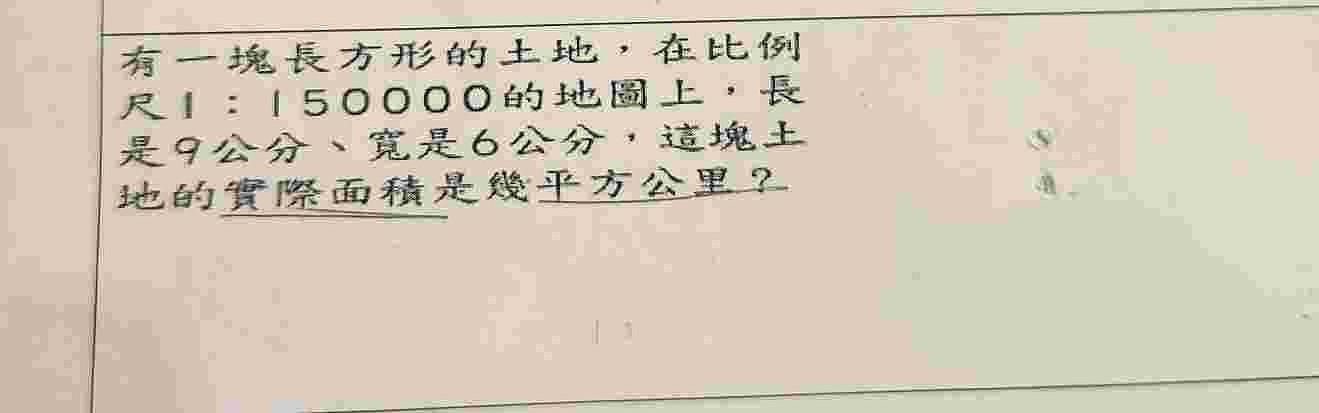 有一塊長方形的土地，在比例
尺1：150000的地圖上，長
是9公分、寬是6公分，這塊土
地的實際面積是幾平方公里？